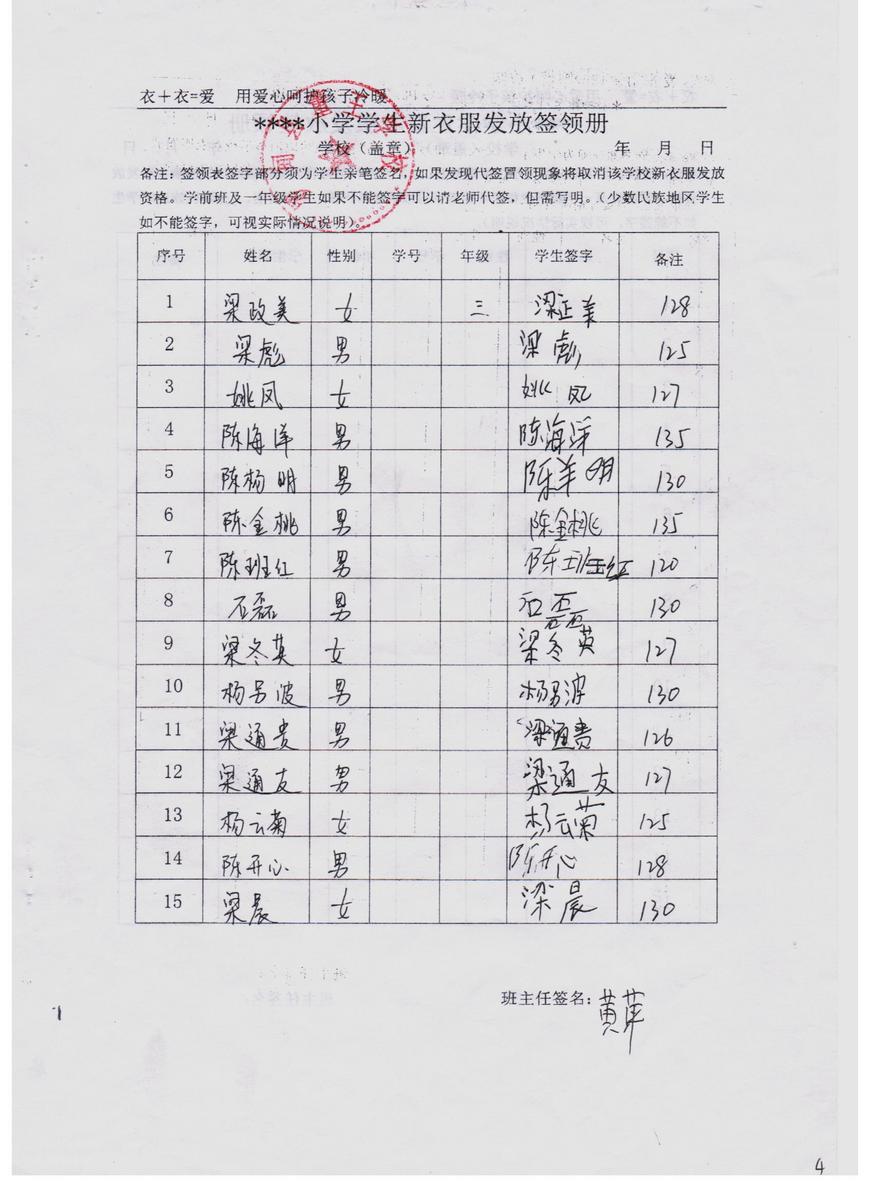 衣＋衣=爱 用爱心呵护孩子冷暖
****小学学生新衣服发放签领册
学校（盖章） 年 月 日
备注：签领表签字部分须为学生亲笔签名，如果发现代签冒领现象将取消该学校新衣服发放
资格。学前班及一年级学生如果不能签字可以请老师代签，但需写明。（少数民族地区学生
如不能签字，可视实际情况说明）。
序号 姓名 性别 学号 年级 学生签字 备注
1 梁政美 女 三 梁正美 128
2 梁彪 男 梁彪 125
3 姚凤 女 姚凤 127
4 陈海洋 男 陈海洋 135
5 陈杨明 男 陈羊明 130
6 陈金桃 男 陈金桃 135
7 陈班红 男 陈班红 120
8 石磊 男 石磊 130
9 梁冬英 女 梁冬英 127
10 杨另波 男 杨男波 130
11 梁通贵 男 梁通贵 126
12 梁通友 男 梁通友 127
13 杨云菊 女 杨云菊 125
14 陈开心 男 陈开心 128
15 梁晨 女 梁晨 130
班主任签名：黄萍
4